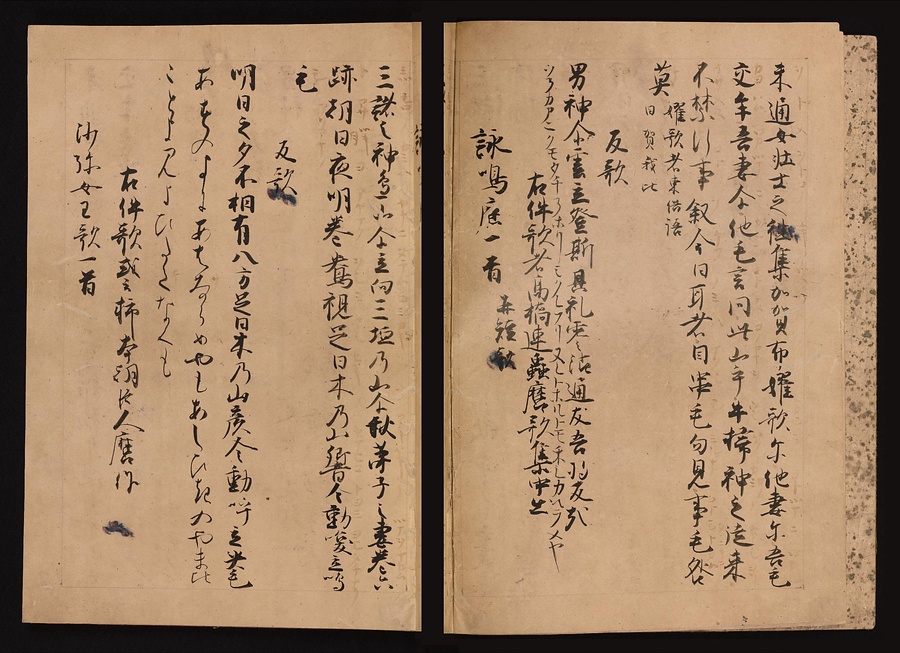 未通女壮士之徃集加賀布嬥歌尓他妻尓吾毛
交牟吾妻尓他毛言問此山乎牛掃神之従来
不禁行事叙今日耳者目串毛勿見事毛咎
莫 嬥歌者東俗語
曰賀我比
反歌
男神尓雲立登斯具礼零沾通友吾将反哉
クモタチノホリシクレフリヌレトホルトモ
右件歌者高橋連蟲麿歌集中出
詠鳴鹿一首 并短歌
三諸之神邊山尓立向三垣乃山尓秋芽子之妻巻六
跡朝日夜明巻鴦視足日木乃山響令動喚立鳴
毛
反歌
明日之夕不相有八方足日木乃山彦令動呼立哭毛
あすのよもあはさらめやもあしひきのやまひ
ことよみよひたてなくも
右件歌或云柿本朝臣人麿作
沙弥女王歌一首